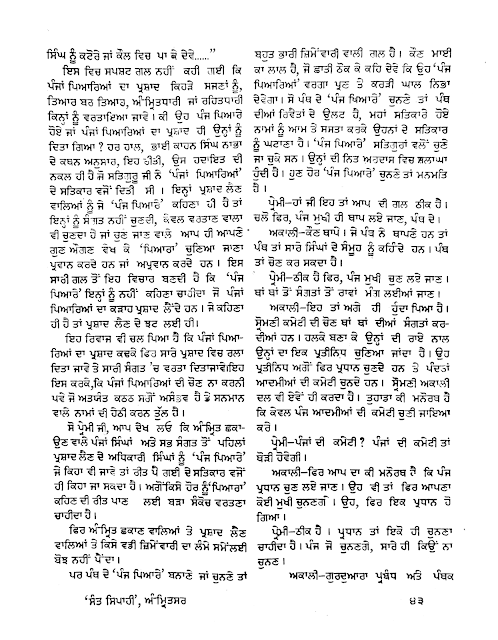 ਸਿੰਘ ਨੂੰ ਕਟੋਰੇ ਜਾਂ ਕੌਲ ਵਿਚ ਪਾ ਕੇ ਦੇਵੇ......”
ਇਸ ਵਿਚ ਸਪਸ਼ਟ ਗਲ ਨਹੀਂ ਕਹੀ ਗਈ ਕਿ
ਪੰਜਾਂ ਪਿਆਰਿਆਂ ਦਾ ਪ੍ਰਸ਼ਾਦ ਕਿਹੜੇ ਸਜਣਾਂ ਨੂੰ,
ਤਿਆਰ ਬਰ ਤਿਆਰ, ਅੰਮ੍ਰਿਤਧਾਰੀ ਜਾਂ ਰਹਿਤਧਾਰੀ
ਕਿਨ੍ਹਾਂ ਨੂੰ ਵਰਤਾਇਆ ਜਾਵੇ। ਕੀ ਉਹ ਪੰਜ ਪਿਆਰੇ
ਹੋਏ ਜਾਂ ਪੰਜਾਂ ਪਿਆਰਿਆਂ ਦਾ ਪ੍ਰਸ਼ਾਦ ਹੀ ਉਨ੍ਹਾਂ ਨੂੰ
ਦਿਤਾ ਗਿਆ ? ਹਰ ਹਾਲ, ਭਾਈ ਕਾਹਨ ਸਿੰਘ ਨਾਭਾ
ਦੇ ਕਥਨ ਅਨੁਸਾਰ, ਇਹ ਰੀਤੀ, ਉਸ ਹਦਾਇਤ ਦੀ
ਨਕਲ ਹੀ ਹੈ ਜੋ ਸਤਿਗੁਰੂ ਜੀ ਨੇ ‘ਪੰਜਾਂ ਪਿਆਰਿਆਂ’
ਦੇ ਸਤਿਕਾਰ ਵਜੋਂ ਦਿਤੀ ਸੀ । ਇਨ੍ਹਾਂ ਪ੍ਰਸ਼ਾਦ ਲੈਣ
ਵਾਲਿਆਂ ਨੂੰ ਜੇ ‘ਪੰਜ ਪਿਆਰੇ’ ਕਹਿਣਾ ਹੀ ਹੈ ਤਾਂ
ਇਨ੍ਹਾਂ ਨੂੰ ਸੰਗਤ ਨਹੀਂ ਚੁਣਦੀ, ਕੇਵਲ ਵਰਤਾਣ ਵਾਲਾ
ਵੀ ਚੁਣਦਾ ਹੈ ਜਾਂ ਚੁਣ ਜਾਣ ਵਾਲੇ ਆਪ ਹੀ ਆਪਣੇ
ਗੁਣ ਔਗਣ ਵੇਖ ਕੇ ‘ਪਿਆਰਾ’ ਚੁਣਿਆ ਜਾਣਾ
ਪ੍ਰਵਾਨ ਕਰਦੇ ਹਨ ਜਾਂ ਅਪ੍ਰਵਾਨ ਕਰਦੇ ਹਨ । ਇਸ
ਸਾਰੀ ਗਲ ਤੋਂ ਇਹ ਵਿਚਾਰ ਬਣਦੀ ਹੈ ਕਿ ‘ਪੰਜ
ਪਿਆਰੇ’ ਇਨ੍ਹਾਂ ਨੂੰ ਨਹੀਂ ਕਹਿਣਾ ਚਾਹੀਦਾ ਜੋ ਪੰਜਾਂ
ਪਿਆਰਿਆਂ ਦਾ ਕੜਾਹ ਪ੍ਰਸ਼ਾਦ ਲੈਂਦੇ ਹਨ । ਜੇ ਕਹਿਣਾ
ਹੀ ਹੈ ਤਾਂ ਪ੍ਰਸ਼ਾਦ ਲੈਣ ਦੇ ਝਟ ਲਈ ਹੀ।
ਇਹ ਰਿਵਾਜ ਵੀ ਚਲ ਪਿਆ ਹੈ ਕਿ ਪੰਜਾਂ ਪਿਆ-
ਰਿਆਂ ਦਾ ਪ੍ਰਸ਼ਾਦ ਕਢਕੇ ਫਿਰ ਸਾਰੇ ਪ੍ਰਸ਼ਾਦ ਵਿਚ ਰਲਾ
ਦਿਤਾ ਜਾਵੇ ਤੇ ਸਾਰੀ ਸੰਗਤ ’ਚ ਵਰਤਾ ਦਿਤਾਜਾਵੇ।ਇਹ
ਇਸ ਕਰਕੇ,ਕਿ ਪੰਜਾਂ ਪਿਆਰਿਆਂ ਦੀ ਚੋਣ ਨਾ ਕਰਨੀ
ਪਵੇ ਜੋ ਅਤਅੰਤ ਕਠਨ ਸਗੋਂ ਅਸੰਭਵ ਹੈ ਤੇ ਸਨਮਾਨ
ਵਾਲੇ ਨਾਮਾਂ ਦੀ ਹੇਠੀ ਕਰਨ ਤੁੱਲ ਹੈ।
ਸੋ ਪ੍ਰੇਮੀ ਜੀ, ਆਪ ਦੇਖ ਲਓ ਕਿ ਅੰਮ੍ਰਿਤ ਛਕਾ-
ਉਣ ਵਾਲੇ ਪੰਜਾਂ ਸਿੰਘਾਂ ਅਤੇ ਸਭ ਸੰਗਤ ਤੋਂ ਪਹਿਲਾਂ
ਪ੍ਰਸ਼ਾਦ ਲੈਣ ਦੇ ਅਧਿਕਾਰੀ ਸਿੰਘਾਂ ਨੂੰ ‘ਪੰਜ ਪਿਆਰੇ’
ਜੇ ਕਿਹਾ ਵੀ ਜਾਵੇ ਤਾਂ ਰੀਤ ਪੈ ਗਈ ਦੇ ਸਤਿਕਾਰ ਵਜੋਂ
ਹੀ ਕਿਹਾ ਜਾ ਸਕਦਾ ਹੈ। ਅਗੋਂ ਕਿਸੇ ਹੋਰ ਨੂੰ‘ਪਿਆਰਾ’
ਕਹਿਣ ਦੀ ਰੀਤ ਪਾਣ ਲਈ ਬੜਾ ਸੰਕੋਚ ਵਰਤਣਾ
ਚਾਹੀਦਾ ਹੈ।
ਫਿਰ ਅੰਮ੍ਰਿਤ ਛਕਾਣ ਵਾਲਿਆਂ ਤੇ ਪ੍ਰਸ਼ਾਦ ਲੈਣ
ਵਾਲਿਆਂ ਤੇ ਕਿਸੇ ਵਡੀ ਜ਼ਿਮੇਂਵਾਰੀ ਦਾ ਲੰਮੇ ਸਮੇਂਲਈ
ਬੋਝ ਨਹੀਂ ਪੈਂਦਾ।
ਪਰ ਪੰਥ ਦੇ ‘ਪੰਜ ਪਿਆਰੇ’ ਬਨਾਣੇ ਜਾਂ ਚੁਨਣੇ ਤਾਂ
ਬਹੁਤ ਭਾਰੀ ਜ਼ਿਮੇਂਵਾਰੀ ਵਾਲੀ ਗਲ ਹੈ। ਕੌਣ ਮਾਈ
ਕਾ ਲਾਲ ਹੈ, ਜੋ ਛਾਤੀ ਠੋਕ ਕੇ ਕਹਿ ਦੇਵੇ ਕਿ ਉਹ ‘ਪੰਜ
ਪਿਆਰਿਆਂ’ ਵਰਗਾ ਪ੍ਰਣ ਤੇ ਕਰੜੀ ਘਾਲ ਨਿਭਾ
ਦੇਵੇਗਾ। ਸੋ ਪੰਥ ਦੇ ‘ਪੰਜ ਪਿਆਰੇ’ ਚੁਨਣੇ ਤਾਂ ਪੰਥ
ਦੀਆਂ ਰਿਵੈਤਾਂ ਦੇ ਉਲਟ ਹੈ, ਮਹਾਂ ਸਤਿਕਾਰੇ ਹੋਏ
ਨਾਮਾਂ ਨੂੰ ਆਮ ਤੇ ਸਸਤਾ ਕਰਕੇ ਉਹਨਾਂ ਦੇ ਸਤਿਕਾਰ
ਨੂੰ ਘਟਾਣਾ ਹੈ। ‘ਪੰਜ ਪਿਆਰੇ’ ਸਤਿਗੁਰਾਂ ਵਲੋਂ ਚੁਣੇ
ਜਾ ਚੁਕੇ ਸਨ। ਉਨ੍ਹਾਂ ਦੀ ਨਿਤ ਅਰਦਾਸ ਵਿਚ ਸ਼ਲਾਘਾ
ਹੁੰਦੀ ਹੈ। ਹੁਣ ਹੋਰ ‘ਪੰਜ ਪਿਆਰੇ’ ਚੁਨਣੇ ਤਾਂ ਮਨਮਤਿ
ਹੈ ।
ਪ੍ਰੇਮੀ—ਹਾਂ ਜੀ ਇਹ ਤਾਂ ਆਪ ਦੀ ਗਲ ਠੀਕ ਹੈ।
ਚਲੋ ਫਿਰ, ਪੰਜ ਮੁਖੀ ਹੀ ਥਾਪ ਲਏ ਜਾਣ, ਪੰਥ ਦੇ।
ਅਕਾਲੀ—ਕੌਣ ਥਾਪੇ। ਜੇ ਪੰਥ ਨੇ ਥਾਪਣੇ ਹਨ ਤਾਂ
ਪੰਥ ਤਾਂ ਸਾਰੇ ਸਿੰਘਾਂ ਦੇ ਸੰਮੂਹ ਨੂੰ ਕਹਿੰਦੇ ਹਨ। ਪੰਥ
ਤਾਂ ਚੋਣ ਕਰ ਸਕਦਾ ਹੈ।
ਪ੍ਰੇਮੀ—ਠੀਕ ਹੈ ਫਿਰ, ਪੰਜ ਮੁਖੀ ਚੁਣ ਲਏ ਜਾਣ।
ਥਾਂ ਥਾਂ ਤੋਂ ਸੰਗਤਾਂ ਤੋਂ ਰਾਵਾਂ ਮੰਗ ਲਈਆਂ ਜਾਣ।
ਅਕਾਲੀ—ਇਹ ਤਾਂ ਅਗੇ ਹੀ ਹੁੰਦਾ ਪਿਆ ਹੈ।
ਸ੍ਰੋਮਣੀ ਕਮੇਟੀ ਦੀ ਚੋਣ ਥਾਂ ਥਾਂ ਦੀਆਂ ਸੰਗਤਾਂ ਕਰ-
ਦੀਆਂ ਹਨ। ਹਲਕੇ ਬਣਾ ਕੇ ਉਨ੍ਹਾਂ ਦੀ ਰਾਏ ਨਾਲ
ਉਨ੍ਹਾਂ ਦਾ ਇਕ ਪ੍ਰਤੀਨਿਧ ਚੁਣਿਆ ਜਾਂਦਾ ਹੈ। ਉਹ
ਪ੍ਰਤੀਨਿਧ ਅਗੋਂ ਫਿਰ ਪ੍ਰਧਾਨ ਚੁਣਦੇ ਹਨ ਤੇ ਪੰਦਰਾਂ
ਆਦਮੀਆਂ ਦੀ ਕਮੇਟੀ ਚੁਨਦੇ ਹਨ। ਸ੍ਰੋਮਣੀ ਅਕਾਲੀ
ਦਲ ਵੀ ਏਵੇਂ ਹੀ ਕਰਦਾ ਹੈ। ਤੁਹਾਡਾ ਕੀ ਮਨੋਰਥ ਹੈ
ਕਿ ਕੇਵਲ ਪੰਜ ਆਦਮੀਆਂ ਦੀ ਕਮੇਟੀ ਚੁਣੀ ਜਾਇਆ
ਕਰੇ।
ਪ੍ਰੇਮੀ—ਪੰਜਾਂ ਦੀ ਕਮੇਟੀ ? ਪੰਜਾਂ ਦੀ ਕਮੇਟੀ ਤਾਂ
ਥੋੜੀ ਹੋਵੇਗੀ।
ਅਕਾਲੀ—ਫਿਰ ਆਪ ਦਾ ਕੀ ਮਨੋਰਥ ਹੈ ਕਿ ਪੰਜ
ਪ੍ਰਧਾਨ ਚੁਣ ਲਏ ਜਾਣ। ਉਹ ਵੀ ਤਾਂ ਫਿਰ ਆਪਣਾ
ਕੋਈ ਮੁਖੀ ਚੁਨਣਗੇ। ਉਹ, ਫਿਰ ਇਕ ਪ੍ਰਧਾਨ ਹੋ
ਗਿਆ।
ਪ੍ਰੇਮੀ—ਠੀਕ ਹੈ । ਪ੍ਰਧਾਨ ਤਾਂ ਇਕੋ ਹੀ ਚੁਨਣਾ
ਚਾਹੀਦਾ ਹੈ। ਪੰਜ ਜੋ ਚੁਨਣਗੇ, ਸਾਰੇ ਹੀ ਕਿਉਂ ਨਾ
ਚੁਨਣ।
ਅਕਾਲੀ—ਗੁਰਦੁਆਰਾ ਪ੍ਰਬੰਧ ਅਤੇ ਪੰਥਕ
‘ਸੰਤ ਸਿਪਾਹੀ’, ਅੰਮ੍ਰਿਤਸਰ
੪੩